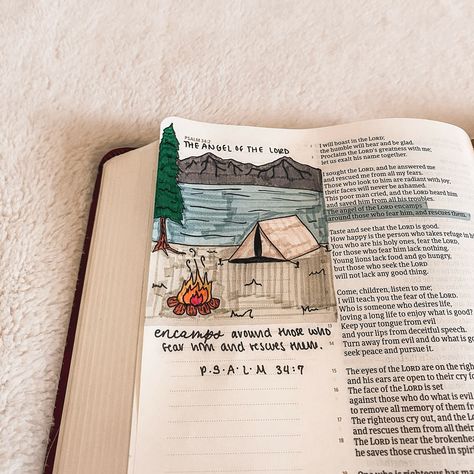 PSALM 34:2
THE ANGEL OF THE LORD
encamps around those who
fear him and rescues them.
P.S.A.L.M 34:7
I will boast in the LORD;
the humble will hear and be glad.
Proclaim the LORD's greatness with me;
let us exalt his name together.
I sought the LORD, and he answered me
and rescued me from all my fears.
Those who look to him are radiant with joy;
their faces will never be ashamed.
This poor man cried, and the LORD heard him
and saved him from all his troubles.
The angel of the LORD encamps
around those who fear him, and rescues them.
Taste and see that the LORD is good.
How happy is the person who takes refuge in
You who are his holy ones, fear the LORD,
for those who fear him lack nothing.
Young lions lack food and go hungry,
but those who seek the LORD
will not lack any good thing.
Come, children, listen to me;
I will teach you the fear of the LORD.
Who is someone who desires life,
loving a long life to enjoy what is good?
13 Keep your tongue from evil
and your lips from deceitful speech.
14 Turn away from evil and do what is go
seek peace and pursue it.
15 The eyes of the LORD are on the right
and his ears are open to their cry fo
16 The face of the LORD is set
against those who do what is evil
to remove all memory of them fr
17 The righteous cry out, and the LORD
and rescues them from all their
18 The LORD is near the brokenhe
he saves those crushed in spiri
One who is righteous has ma